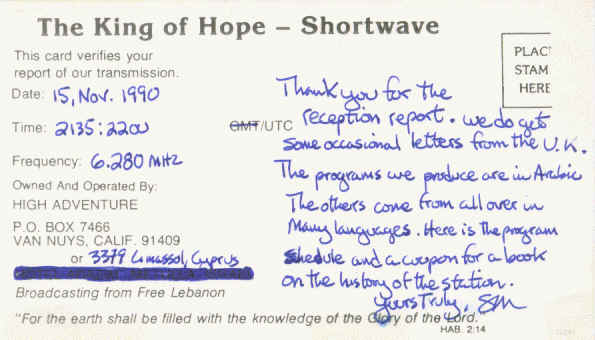 The King of Hope – Shortwave
This card verifies your
report of our transmission.
Date: 15, Nov. 1990
Time: 2135:2200 GMT/UTC
Frequency: 6.280 MHz
Owned And Operated By:
HIGH ADVENTURE
P.O. BOX 7466
VAN NUYS, CALIF. 91409
or 3379 Limassol, Cyprus
Broadcasting from Free Lebanon
"For the earth shall be filled with the knowledge of the Glory of the Lord."
HAB. 2:14
PLAC
STAM
HERE
Thank you for the
reception report. we do get
some occasional letters from the U.K.
The programs we produce are in Arabic
The others come from all over in
Many languages. Here is the program
shedule and a coupon for a book
on the history of the station.
Yours Truly,